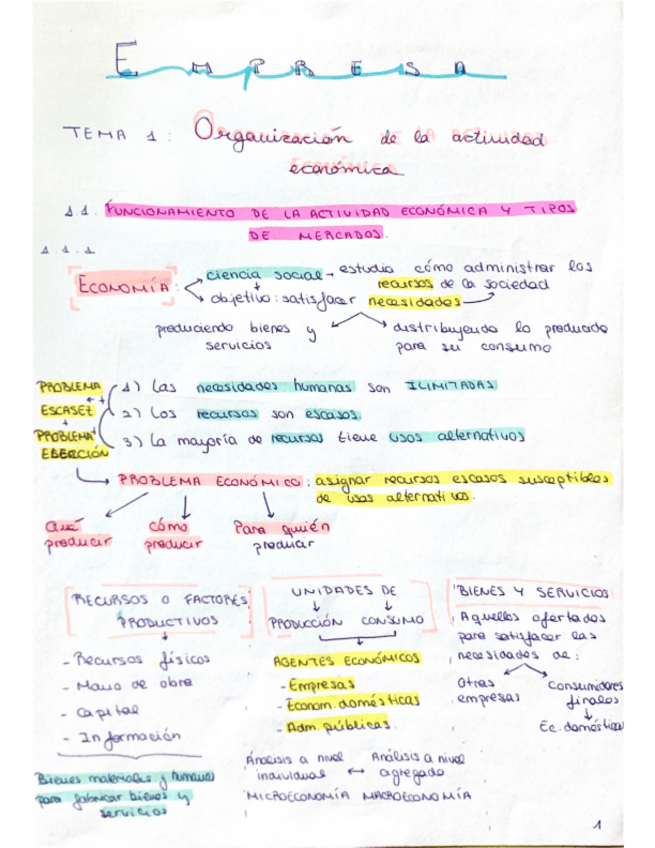 EMPRESA
TEMA 1: Organización de la actividad
económica
1.1. FUNCIONAMIENTO DE LA ACTIVIDAD ECONÓMICA Y TIPOS
DE MERCADOS.
1.1.1
ECONOMÍA: ciencia social → estudia cómo administrar los
recursos de la sociedad
objetivo: satisfacer necesidades
produciendo bienes y
servicios
distribuyendo lo producido
para su consumo
PROBLEMA
ESCASEZ
+
PROBLEMA
ELECCIÓN
1) Las necesidades humanas son ILIMITADAS
2) Los recursos son escasos
3) La mayoría de recursos tiene usos alternativos
PROBLEMA ECONÓMICO: asignar recursos escasos susceptibles
de usos alternativos.
Qué
producir
cómo
producir
Para quién
producir
RECURSOS O FACTORES
PRODUCTIVOS
- Recursos físicos
- Mano de obra
- Capital
- Información
Bienes materiales y humanos
para fabricar bienes y
servicios
UNIDADES DE
PRODUCCIÓN CONSUMO
AGENTES ECONÓMICOS
- Empresas
- Econom. domésticas
- Adm. públicas.
Análisis a nivel
individual ↔
MICROECONOMÍA
Análisis a nivel
agregado
MACROECONOMÍA
BIENES Y SERVICIOS
Aquellos ofertados
para satisfacer las
necesidades de:
Otras
empresas
Consumidores
finales
Ec. doméstica
1